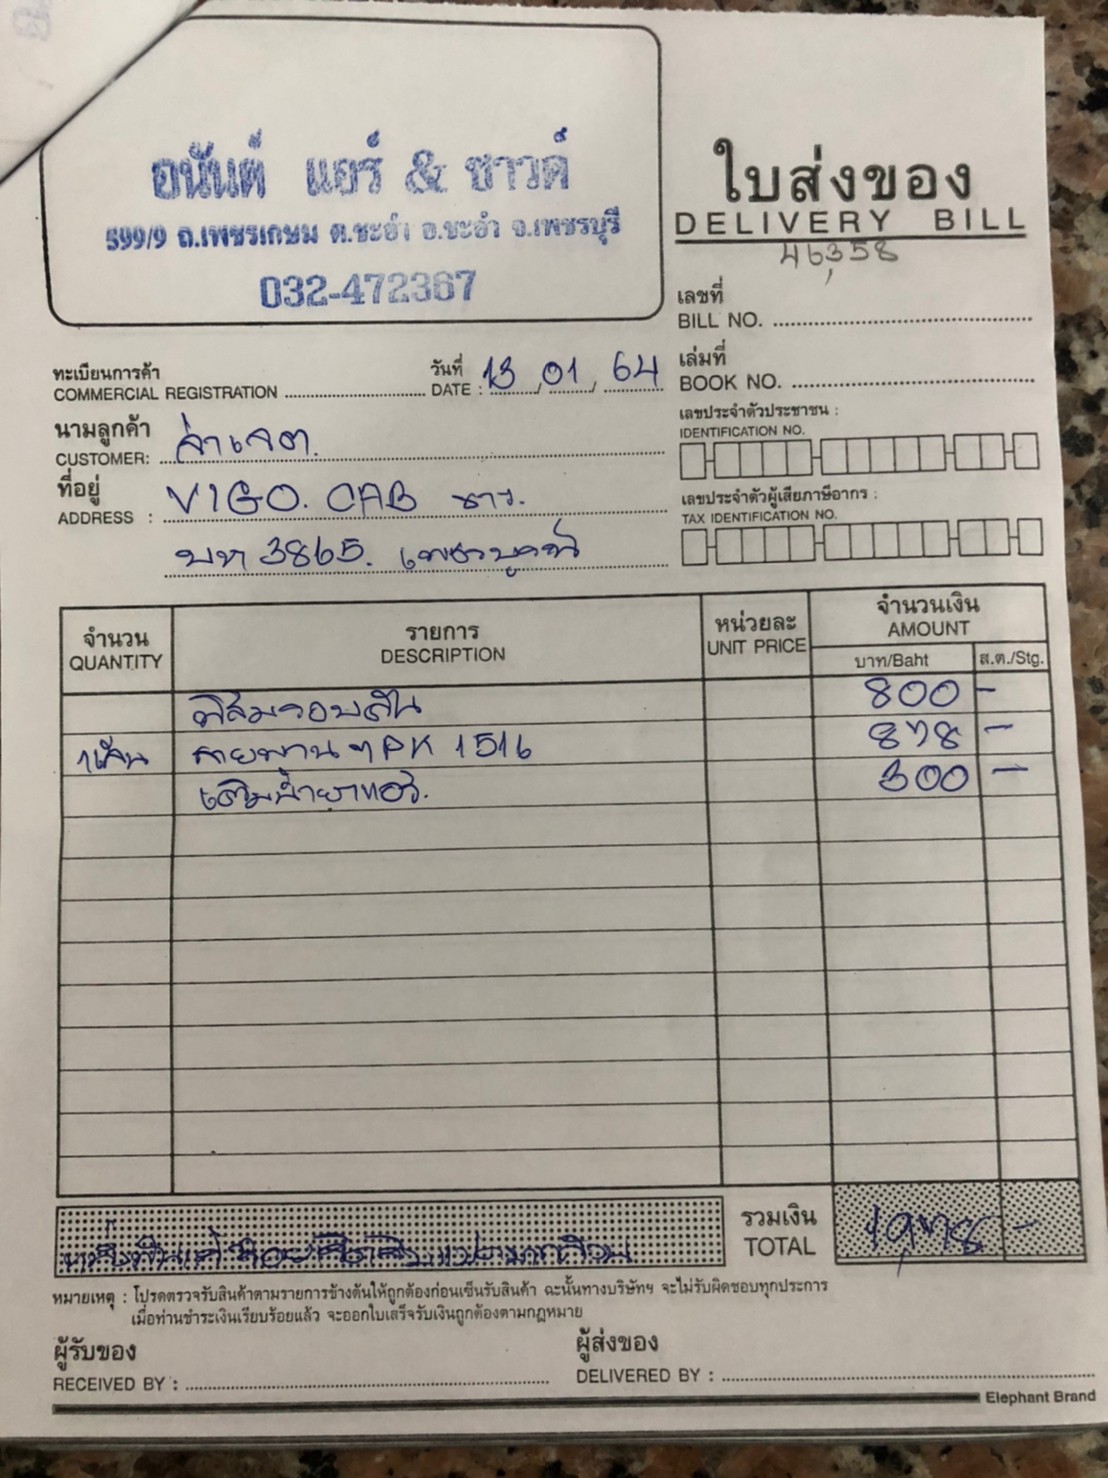 อนันต์ แอร์ & ซาวด์
599/9 ถ.เพชรเกษม ต.ชะอำ อ.ชะอำ จ.เพชรบุรี
032-472367
ใบส่งของ
DELIVERY BILL
46,358
เลขที่
BILL NO.
ทะเบียนการค้า
COMMERCIAL REGISTRATION
วันที่
DATE : 13/01/64
เล่มที่
BOOK NO.
นามลูกค้า
CUSTOMER:
เลขประจำตัวประชาชน :
IDENTIFICATION NO.
ที่อยู่
ADDRESS : VIGO. CAB ขาว.
บท 3865. เพชรบูรณ์
เลขประจำตัวผู้เสียภาษีอากร :
TAX IDENTIFICATION NO.
จำนวน รายการ หน่วยละ จำนวนเงิน
QUANTITY DESCRIPTION UNIT PRICE AMOUNT
บาท/Baht ส.ต./Stg.
ฟิล์มรอบคัน 800 -
1เส้น สายพาน 7PK 1516 878 -
เติมน้ำยาแอร์. 300 -
รวมเงิน
TOTAL 1,978 -
หมายเหตุ : โปรดตรวจรับสินค้าตามรายการข้างต้นให้ถูกต้องก่อนเซ็นรับสินค้า ฉะนั้นทางบริษัทฯ จะไม่รับผิดชอบทุกประการ
เมื่อท่านชำระเงินเรียบร้อยแล้ว จะออกใบเสร็จรับเงินถูกต้องตามกฎหมาย
ผู้รับของ
RECEIVED BY :
ผู้ส่งของ
DELIVERED BY :
Elephant Brand